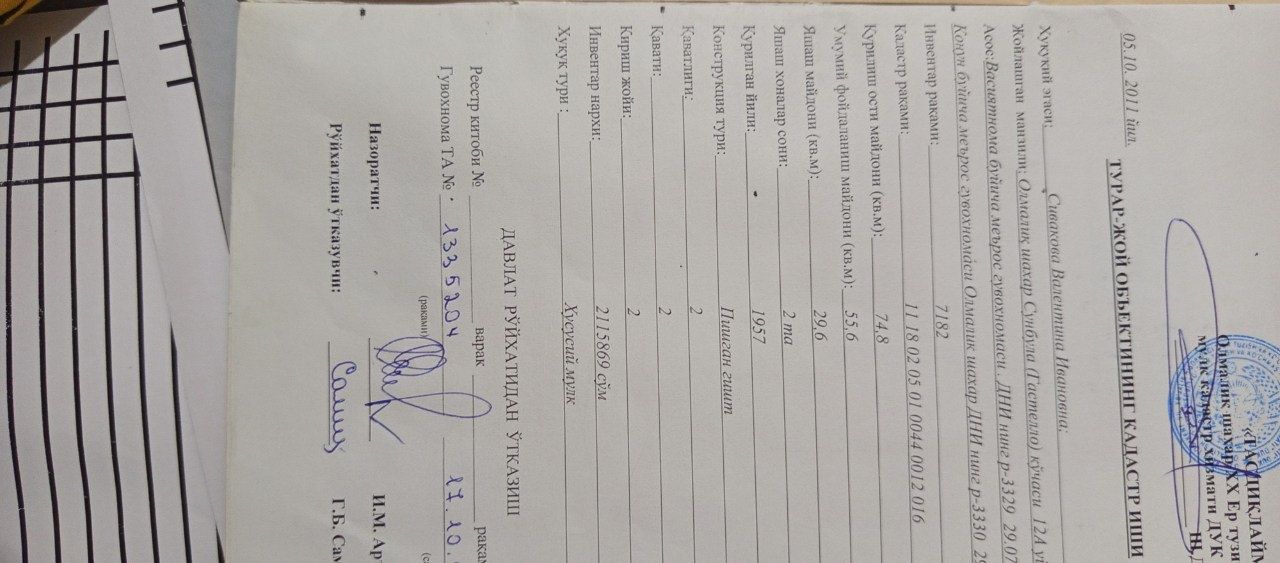 «ТАСДИҚЛАЙМ
Олмалик шахар ХХ Ер тузи
мулк кадастр хизмати ДУК
05.10. 2011 йил.
ТУРАР-ЖОЙ ОБЪЕКТИНИНГ КАДАСТР ИШИ
Хуқуқий эгаси: Сивакова Валентина Ивановна:
Жойлашган манзили: Олмалиқ шахар Сунбула (Гастелло) кўчаси 12А уй
Асос:Васиятнома буйича меърос гувохномаси. ДНИ нинг р-3329 29.07
Конун буйича меърос гувохномаси Олмалик шахар ДНИ нинг р-3330 29
Инвентар раками: 7182
Кадастр раками: 11 18 02 05 01 0044 0012 016
Қурилиш ости майдони (кв.м): 74,8
Умумий фойдаланиш майдони (кв.м): 55,6
Яшаш майдони (кв.м): 29,6
Яшаш хоналар сони: 2 та
Қурилган йили: 1957
Конструкция тури: Пишган ғишт
Қаватлиги: 2
Қавати: 2
Кириш жойи: 2
Инвентар нархи: 2115869 сўм
Хуқуқ тури : Хусусий мулк
ДАВЛАТ РЎЙХАТИДАН ЎТКАЗИШ
Реестр китоби № варак ракам
Гувохнома ТА № 1335204 17.10.
(раками)
Назоратчи: И.М. Ар
Рўйхатдан ўтказувчи: Г.Б. Сам